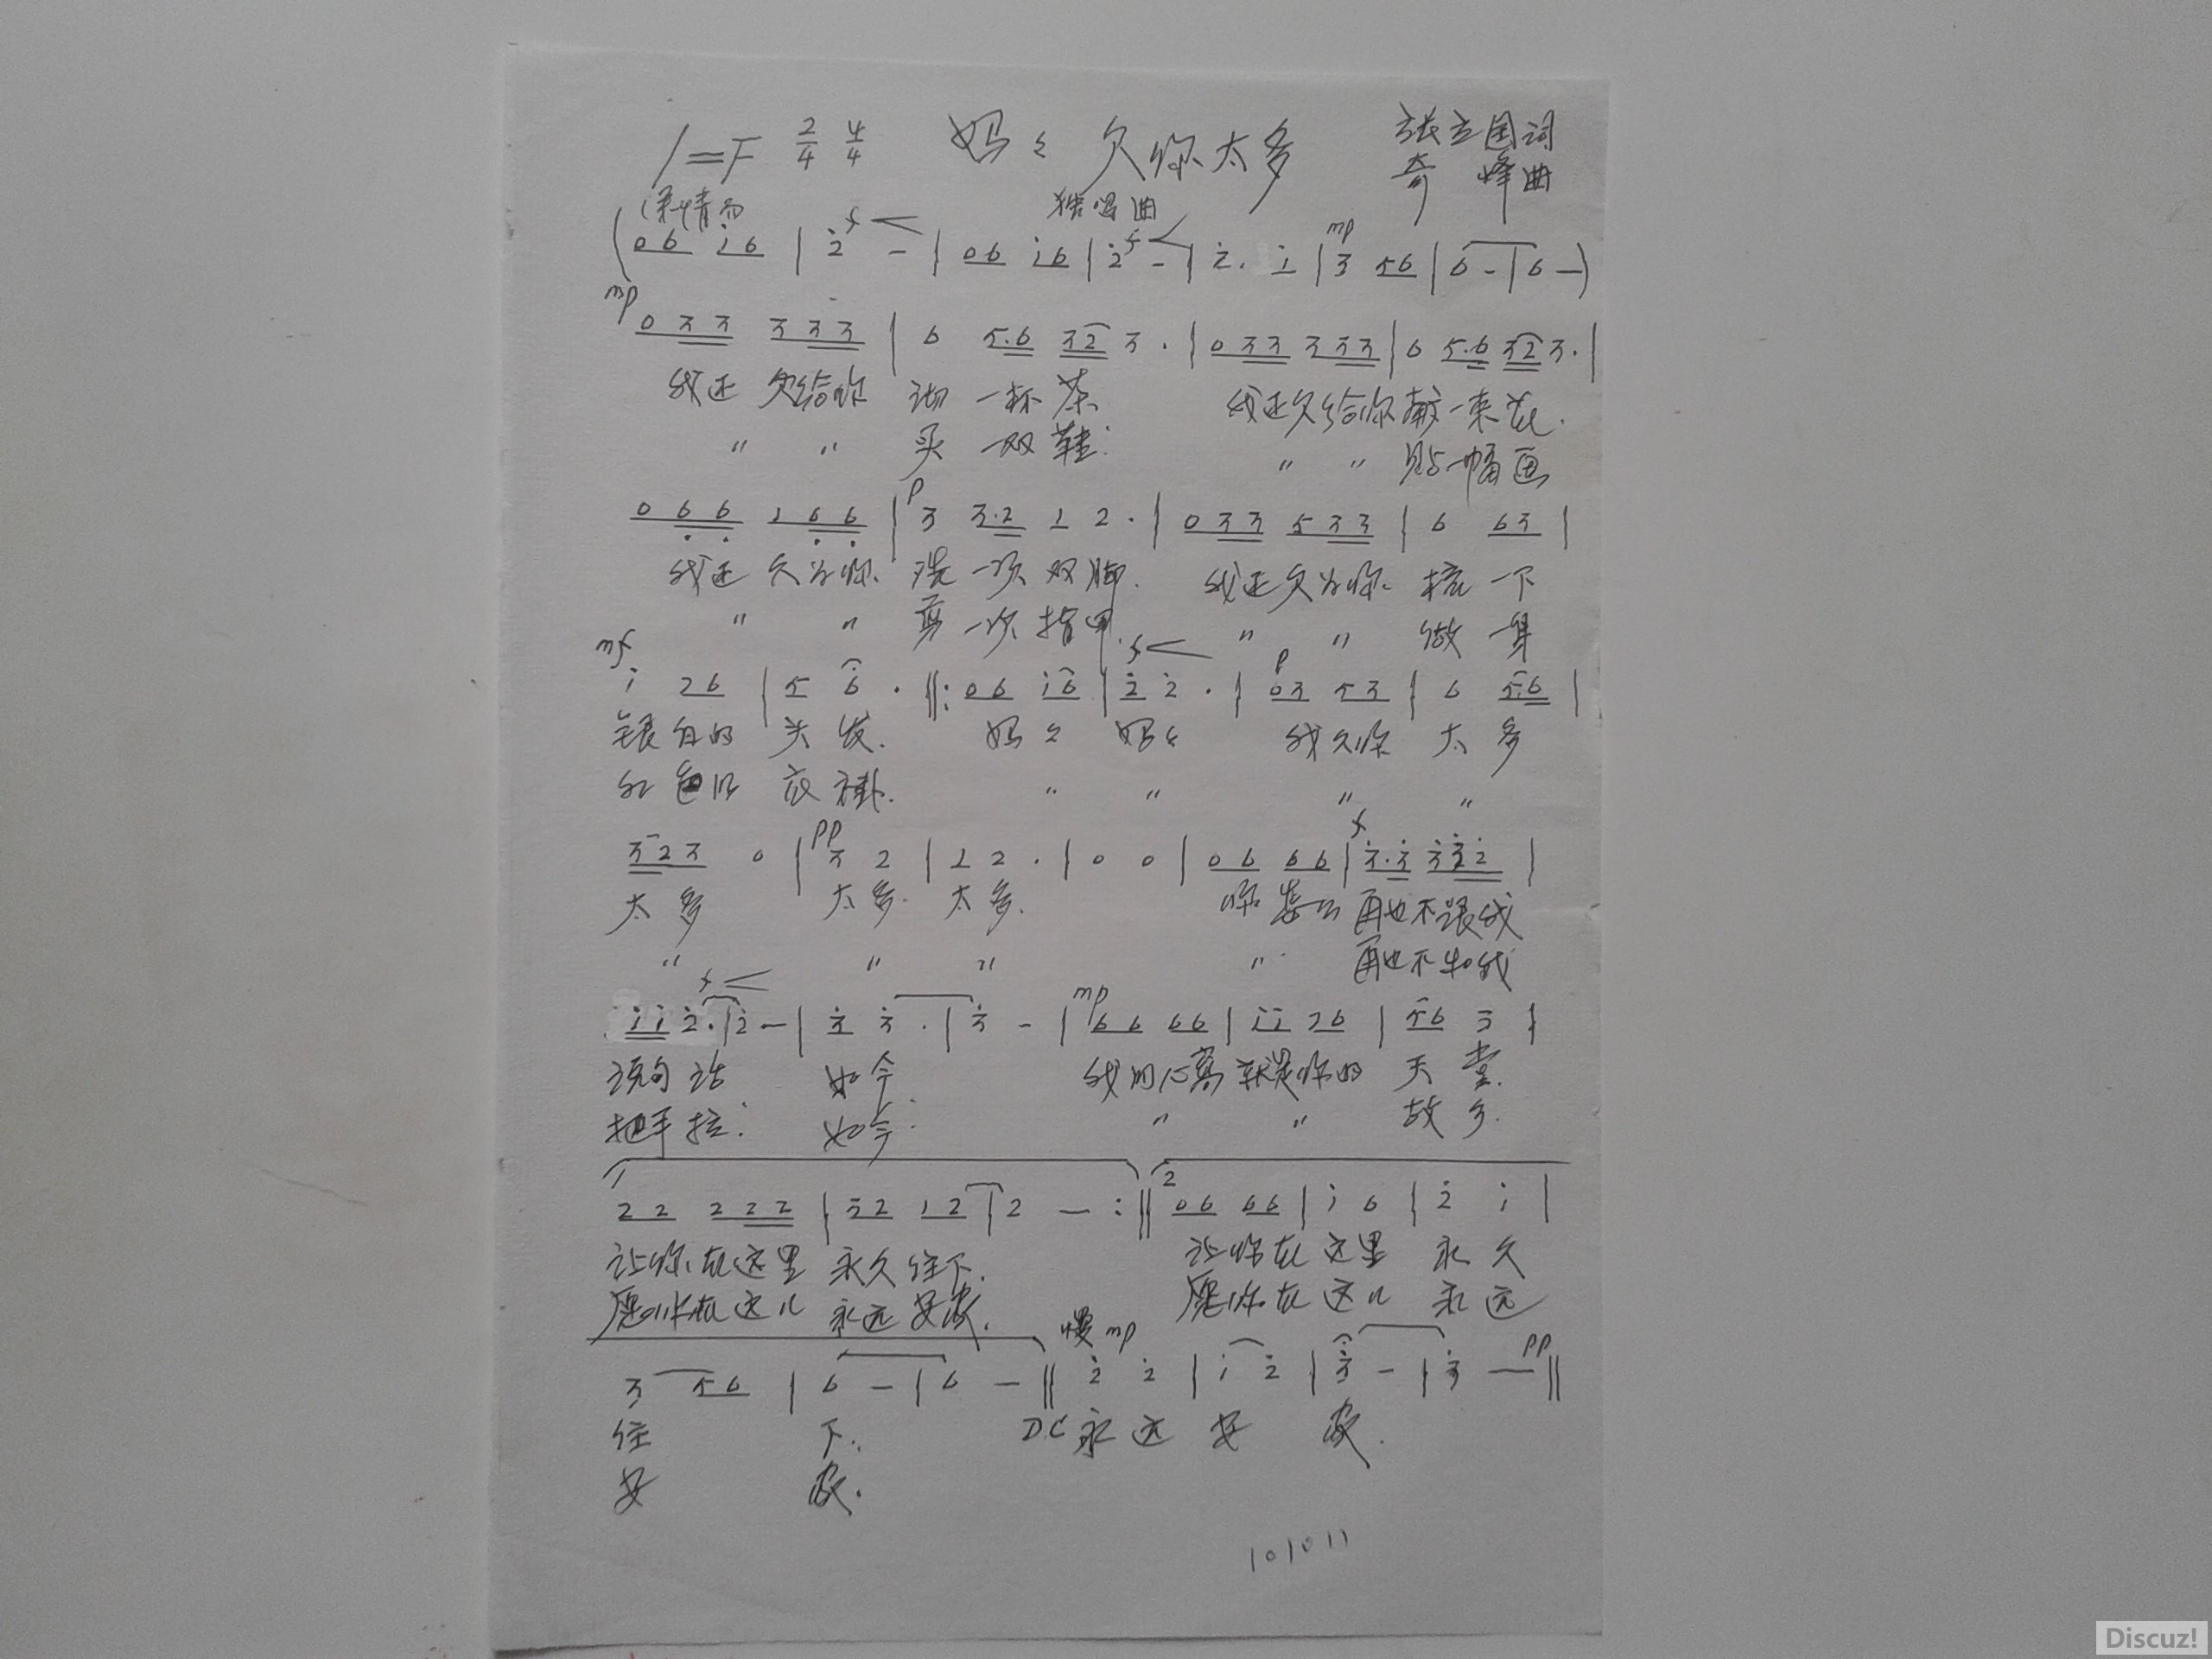 1=F 2/4 4/4 妈々 欠你太多 张立国词
奇峰曲
独唱曲
(0 6 i 6 | 2̇ f - | 0 6 i 6 | 2̇ f - | 2̇. i | mp 3 5 6 | 6 - | 6 -)
mp 0 3 3 3 3 3 | 6 5.6 3 2 3. | 0 3 3 3 3 3 | 6 5.6 3 2 3. |
我还 欠给你 沏 一杯 茶 我还欠给你献一束花.
〃 〃 买 一双 鞋. 〃 〃 贴一幅画
0 6̣ 6̣ 1 6̣ 6̣ | p 3 3.2 1 2. | 0 3 3 5 3 3 | 6 6 3 |
我还 欠为你 洗 一次 双脚. 我还欠为你 梳 一下
〃 〃 剪 一次 指甲. 〃 〃 做 一身
mf i 2 6 | 5 6. ‖: 0 6 i 6 | f 2̇ 2̇. | p 0 3 5 3 | 6 5.6 |
银白的 头发. 妈々 妈々 我欠你 太 多
红色的 衣褂. 〃 〃 〃 〃
3 2 3 0 | pp 3 2 | 1 2. | 0 0 | 0 6 6 6 | f 3̇.3̇ 3̇ 3̇ 2̇ |
太 多 太 多. 太 多. 你 怎么 再也不跟我
〃 〃 〃 〃 再也不和我
i i 2̇. | f 2̇ - | 3̇ 3̇. | 3̇ - | mp 6 6 6 6 | i i 2 6 | 5 6 3 |
说句 话 如今 我的心窝 就是你的 天 堂.
把手 拉. 如今. 〃 〃 故 乡.
1 2 2 2 2 2 | 3 2 1 2 | 2 - :‖ 2 0 6 6 6 | i 6 | 2̇ i |
让你在这里 永久住下. 让你在 这里 永 久
愿你在这儿 永远安家. 愿你在 这儿 永 远
慢 mp
3 5 6 | 6 - | 6 - ‖ 2̇ 2̇ | i 2̇ | 3̇ - | 3̇ - pp ‖
住 下. D.C 永 远 安 家.
安 家.
101011
Discuz!